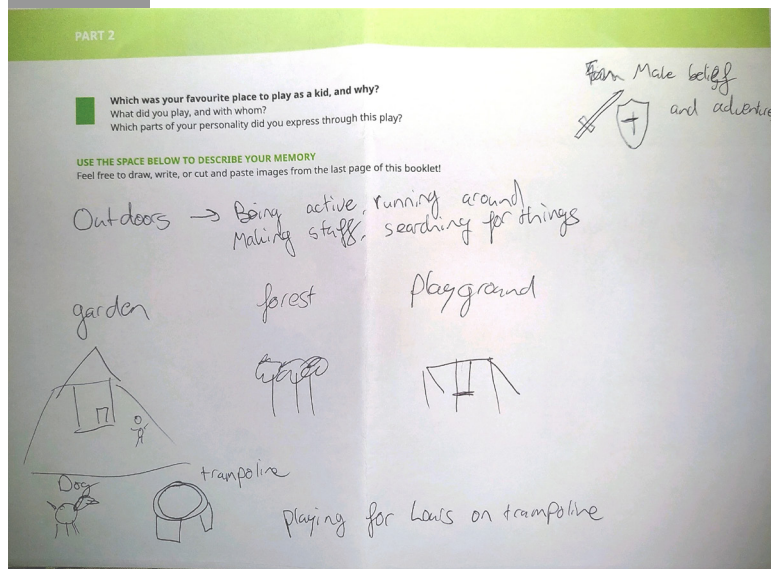 PART 2
Which was your favourite place to play as a kid, and why?
What did you play, and with whom?
Which parts of your personality did you express through this play?
Male belief
and adventure
USE THE SPACE BELOW TO DESCRIBE YOUR MEMORY
Feel free to draw, write, or cut and paste images from the last page of this booklet!
Outdoors → Being active, running around,
Making stuff, searching for things
garden
forest
playground
Dog
trampoline
playing for hours on trampoline